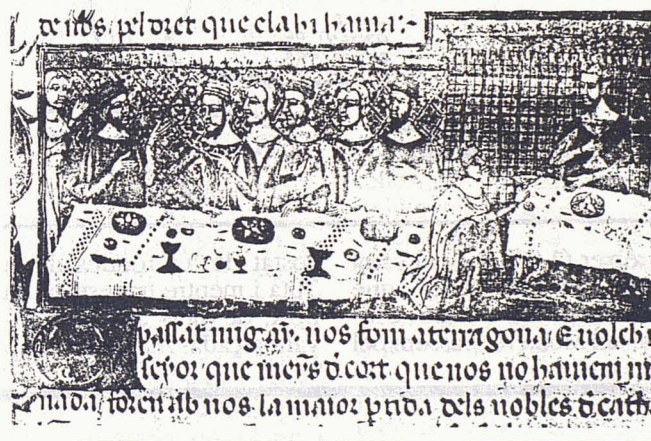 de nos pel dret que ela hi hauia:-
passat mig ay. nos fom aterragona E uolch
seyor que meys d cort que nos no hauiem
nada / foren ab nos la maior ptida dels nobles d cath